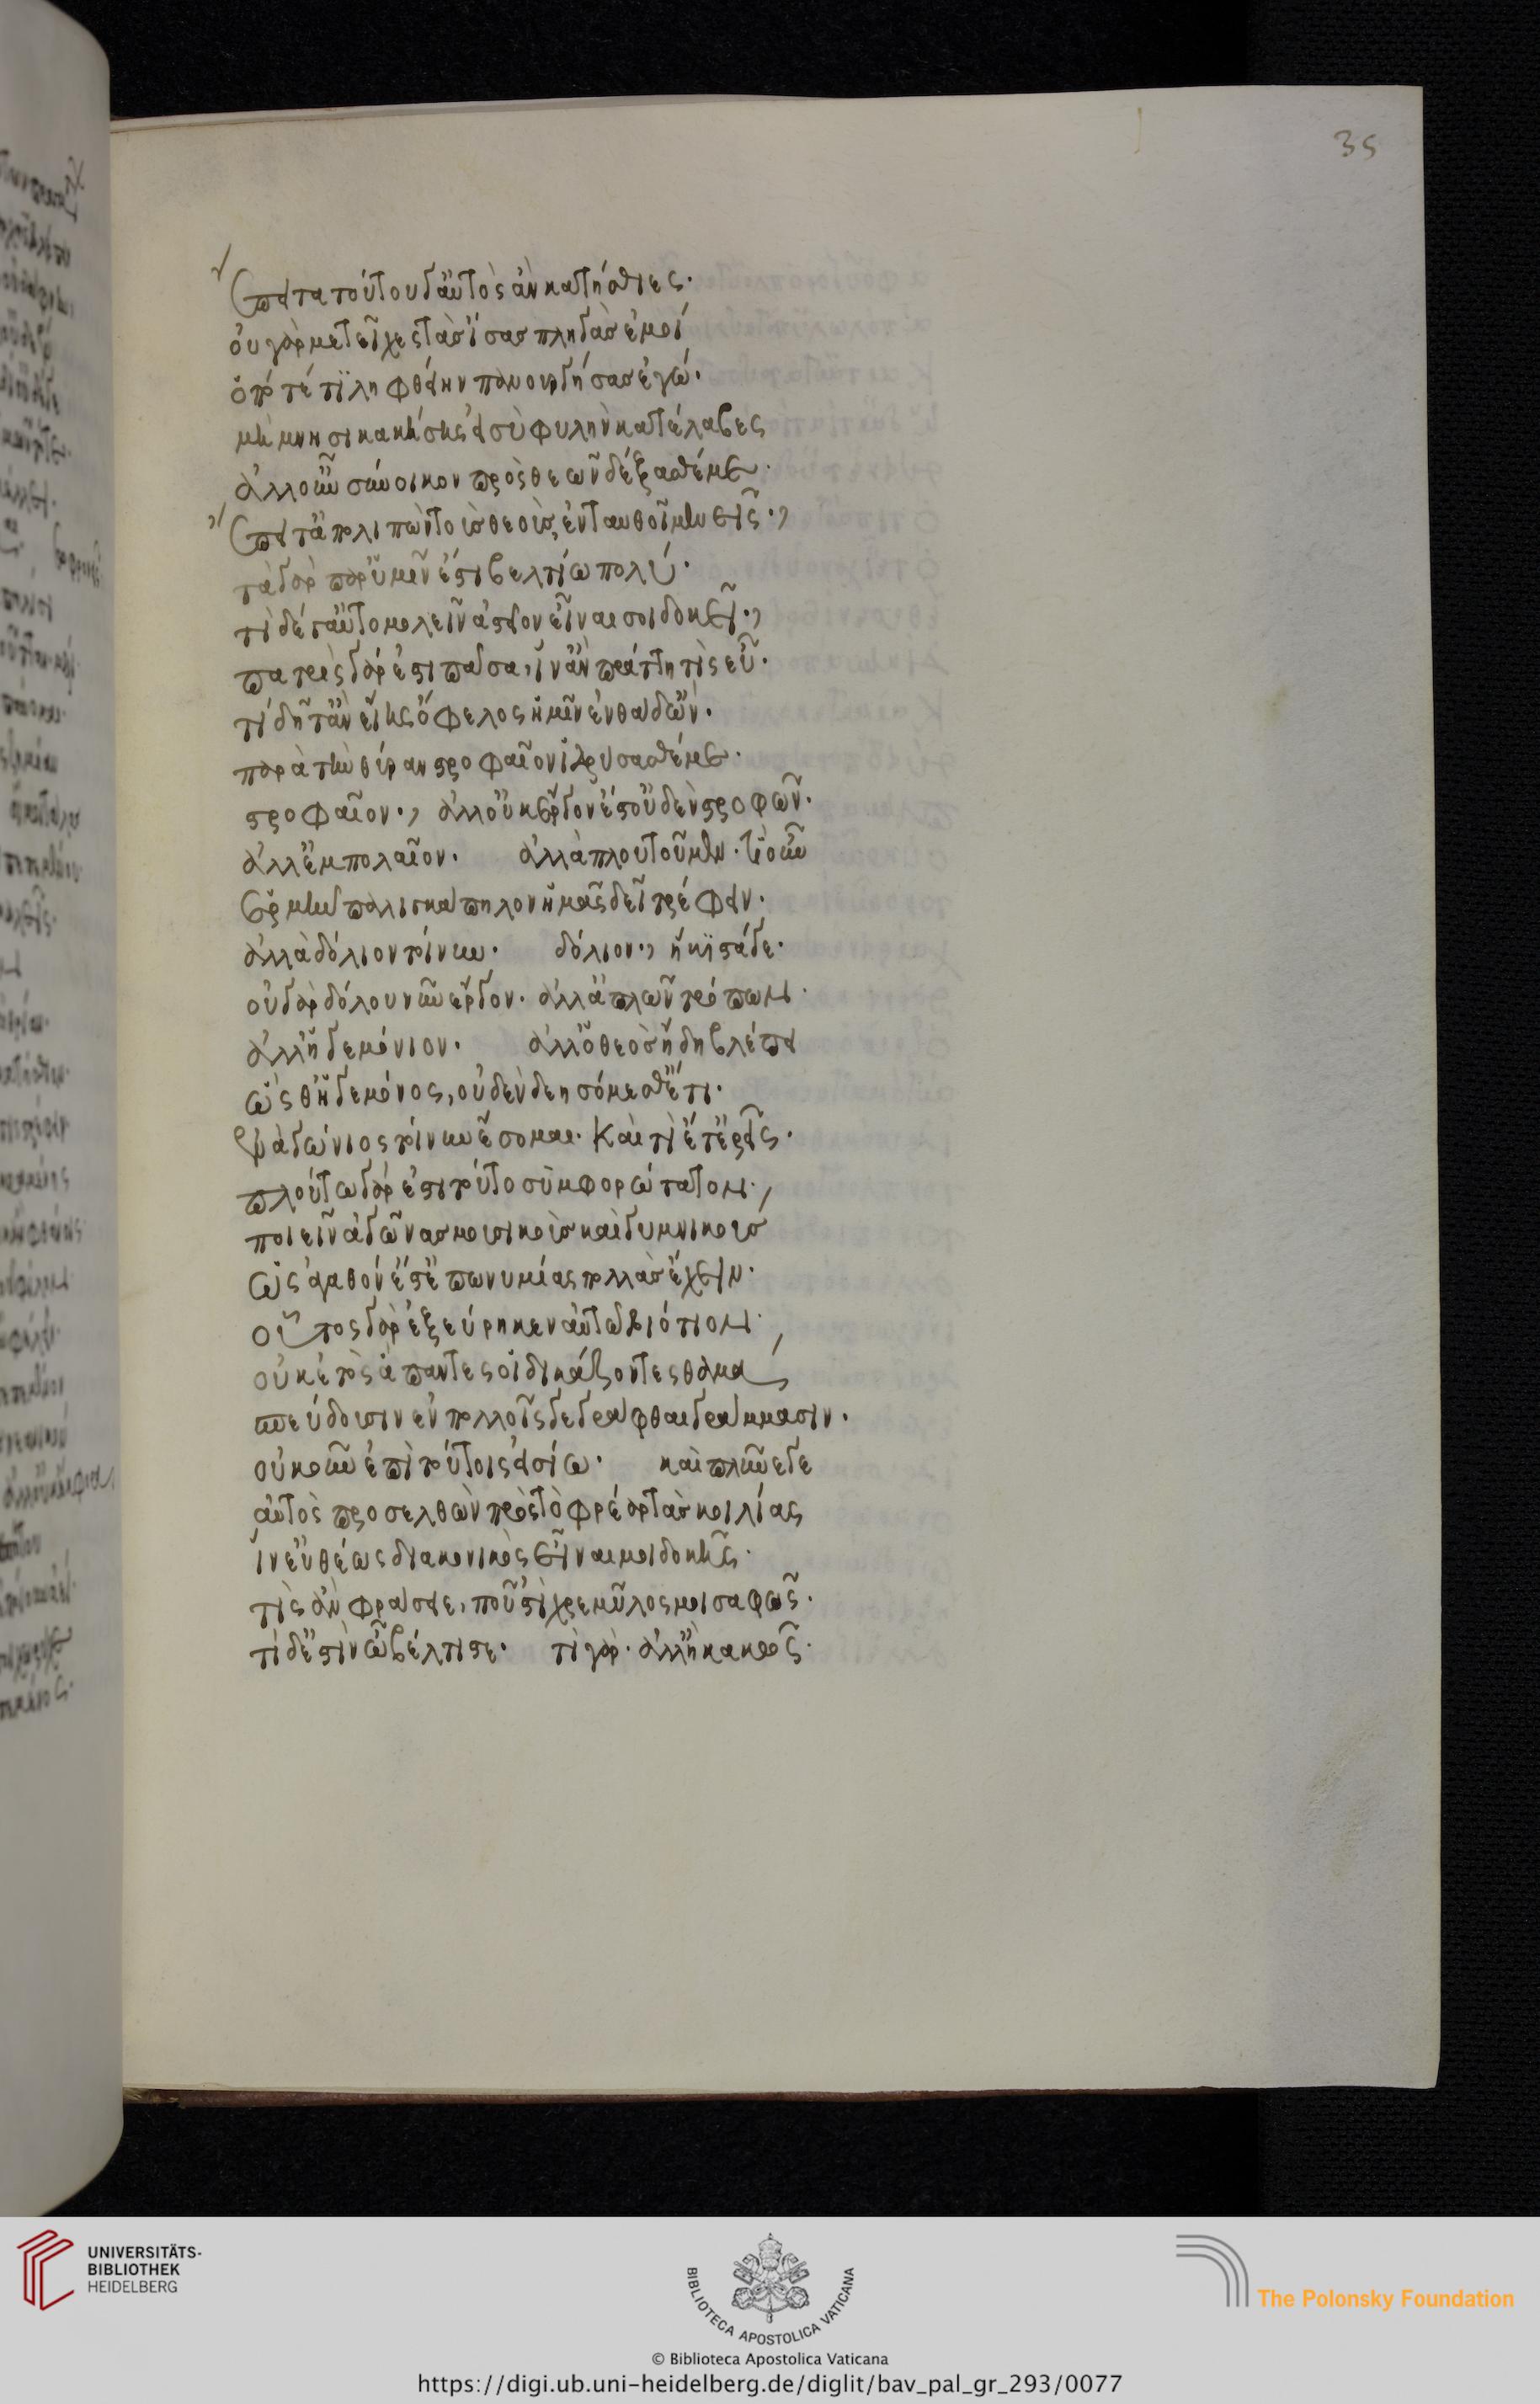 35
ἔπειτα τούτου γ' αὐτὸς ἂν κατήσθιες.
οὐ γὰρ μετεῖχες τὰς ἴσας πληγὰς ἐμοί
ὁπότέ τι ληφθείην πανουργήσας ἐγώ.
μὴ μνησικακήσῃς εἰ σὺ φυλὴν κατέλαβες
ἀλλ' οὖν σύνοικον πρὸς θεῶν δέξασθέ με.
ἔπειτ' ἀπολιπὼν τοὺς θεοὺς, ἐνταυθοῖ μενεῖς;
τὰ γὰρ παρ' ὑμῖν ἐστι βελτίω πολύ.
τί δέ ταὐτομολεῖν ἀστεῖον εἶναί σοι δοκεῖ;
πατρὶς γάρ ἐστι πᾶσα, ἵν' ἂν πράττῃ τις εὖ.
τί δῆτ' ἂν εἴης ὄφελος ἡμῖν ἐνθάδ' ὤν.
παρὰ τὴν θύραν στροφαῖον ἱδρύσασθέ με.
στροφαῖον; ἀλλ' οὐκ ἔργον ἔστ' οὐδὲν στροφῶν.
ἀλλ' ἐμπολαῖον. ἀλλὰ πλουτοῦμεν. τί οὖν
ἑρμῆν παλιγκάπηλον ἡμᾶς δεῖ τρέφειν.
ἀλλὰ δόλιον τοίνυν. δόλιον; ἥκιστά γε.
οὐ γὰρ δόλου νῦν ἔργον. ἀλλ' ἁπλῶν τρόπων.
ἀλλ' ἡγεμόνιον. ἀλλ' ὁ θεὸς ἤδη βλέπει
ὥσθ' ἡγεμόνος, οὐδὲν δεησόμεσθ' ἔτι.
ἐναγώνιος τοίνυν ἔσομαι. καὶ τί ἔτ' ἐρεῖς.
πλούτῳ γάρ ἐστι τοῦτο συμφορώτατον,
ποιεῖν ἀγῶνας μουσικοὺς καὶ γυμνικούς
ὡς ἀγαθόν ἐστ' ἐπωνυμίας πολλὰς ἔχειν.
οὗτος γὰρ ἐξεύρηκεν αὑτῷ βιότιον.
οὐκ ἐτὸς ἅπαντες οἱ δικάζοντες θαμὰ
σπεύδουσιν ἐν πολλοῖς γεγράφθαι γράμμασιν.
οὐκοῦν ἐπὶ τούτοις εἰσίω. καὶ πλῦνέ γε
αὐτὸς προσελθὼν πρὸς τὸ φρέαρ τὰς κοιλίας
ἵν' εὐθέως διακονικὸς εἶναί μοι δοκῇς.
τίς ἂν φράσειε, ποῦ 'στι χρεμύλος μοι σαφῶς.
τί δ' ἔστιν ὦ βέλτιστε. τί γάρ. ἀλλ' ἢ κακῶς.
UNIVERSITÄTS-
BIBLIOTHEK
HEIDELBERG
BIBLIOTECA APOSTOLICA VATICANA
The Polonsky Foundation
© Biblioteca Apostolica Vaticana
https://digi.ub.uni-heidelberg.de/diglit/bav_pal_gr_293/0077